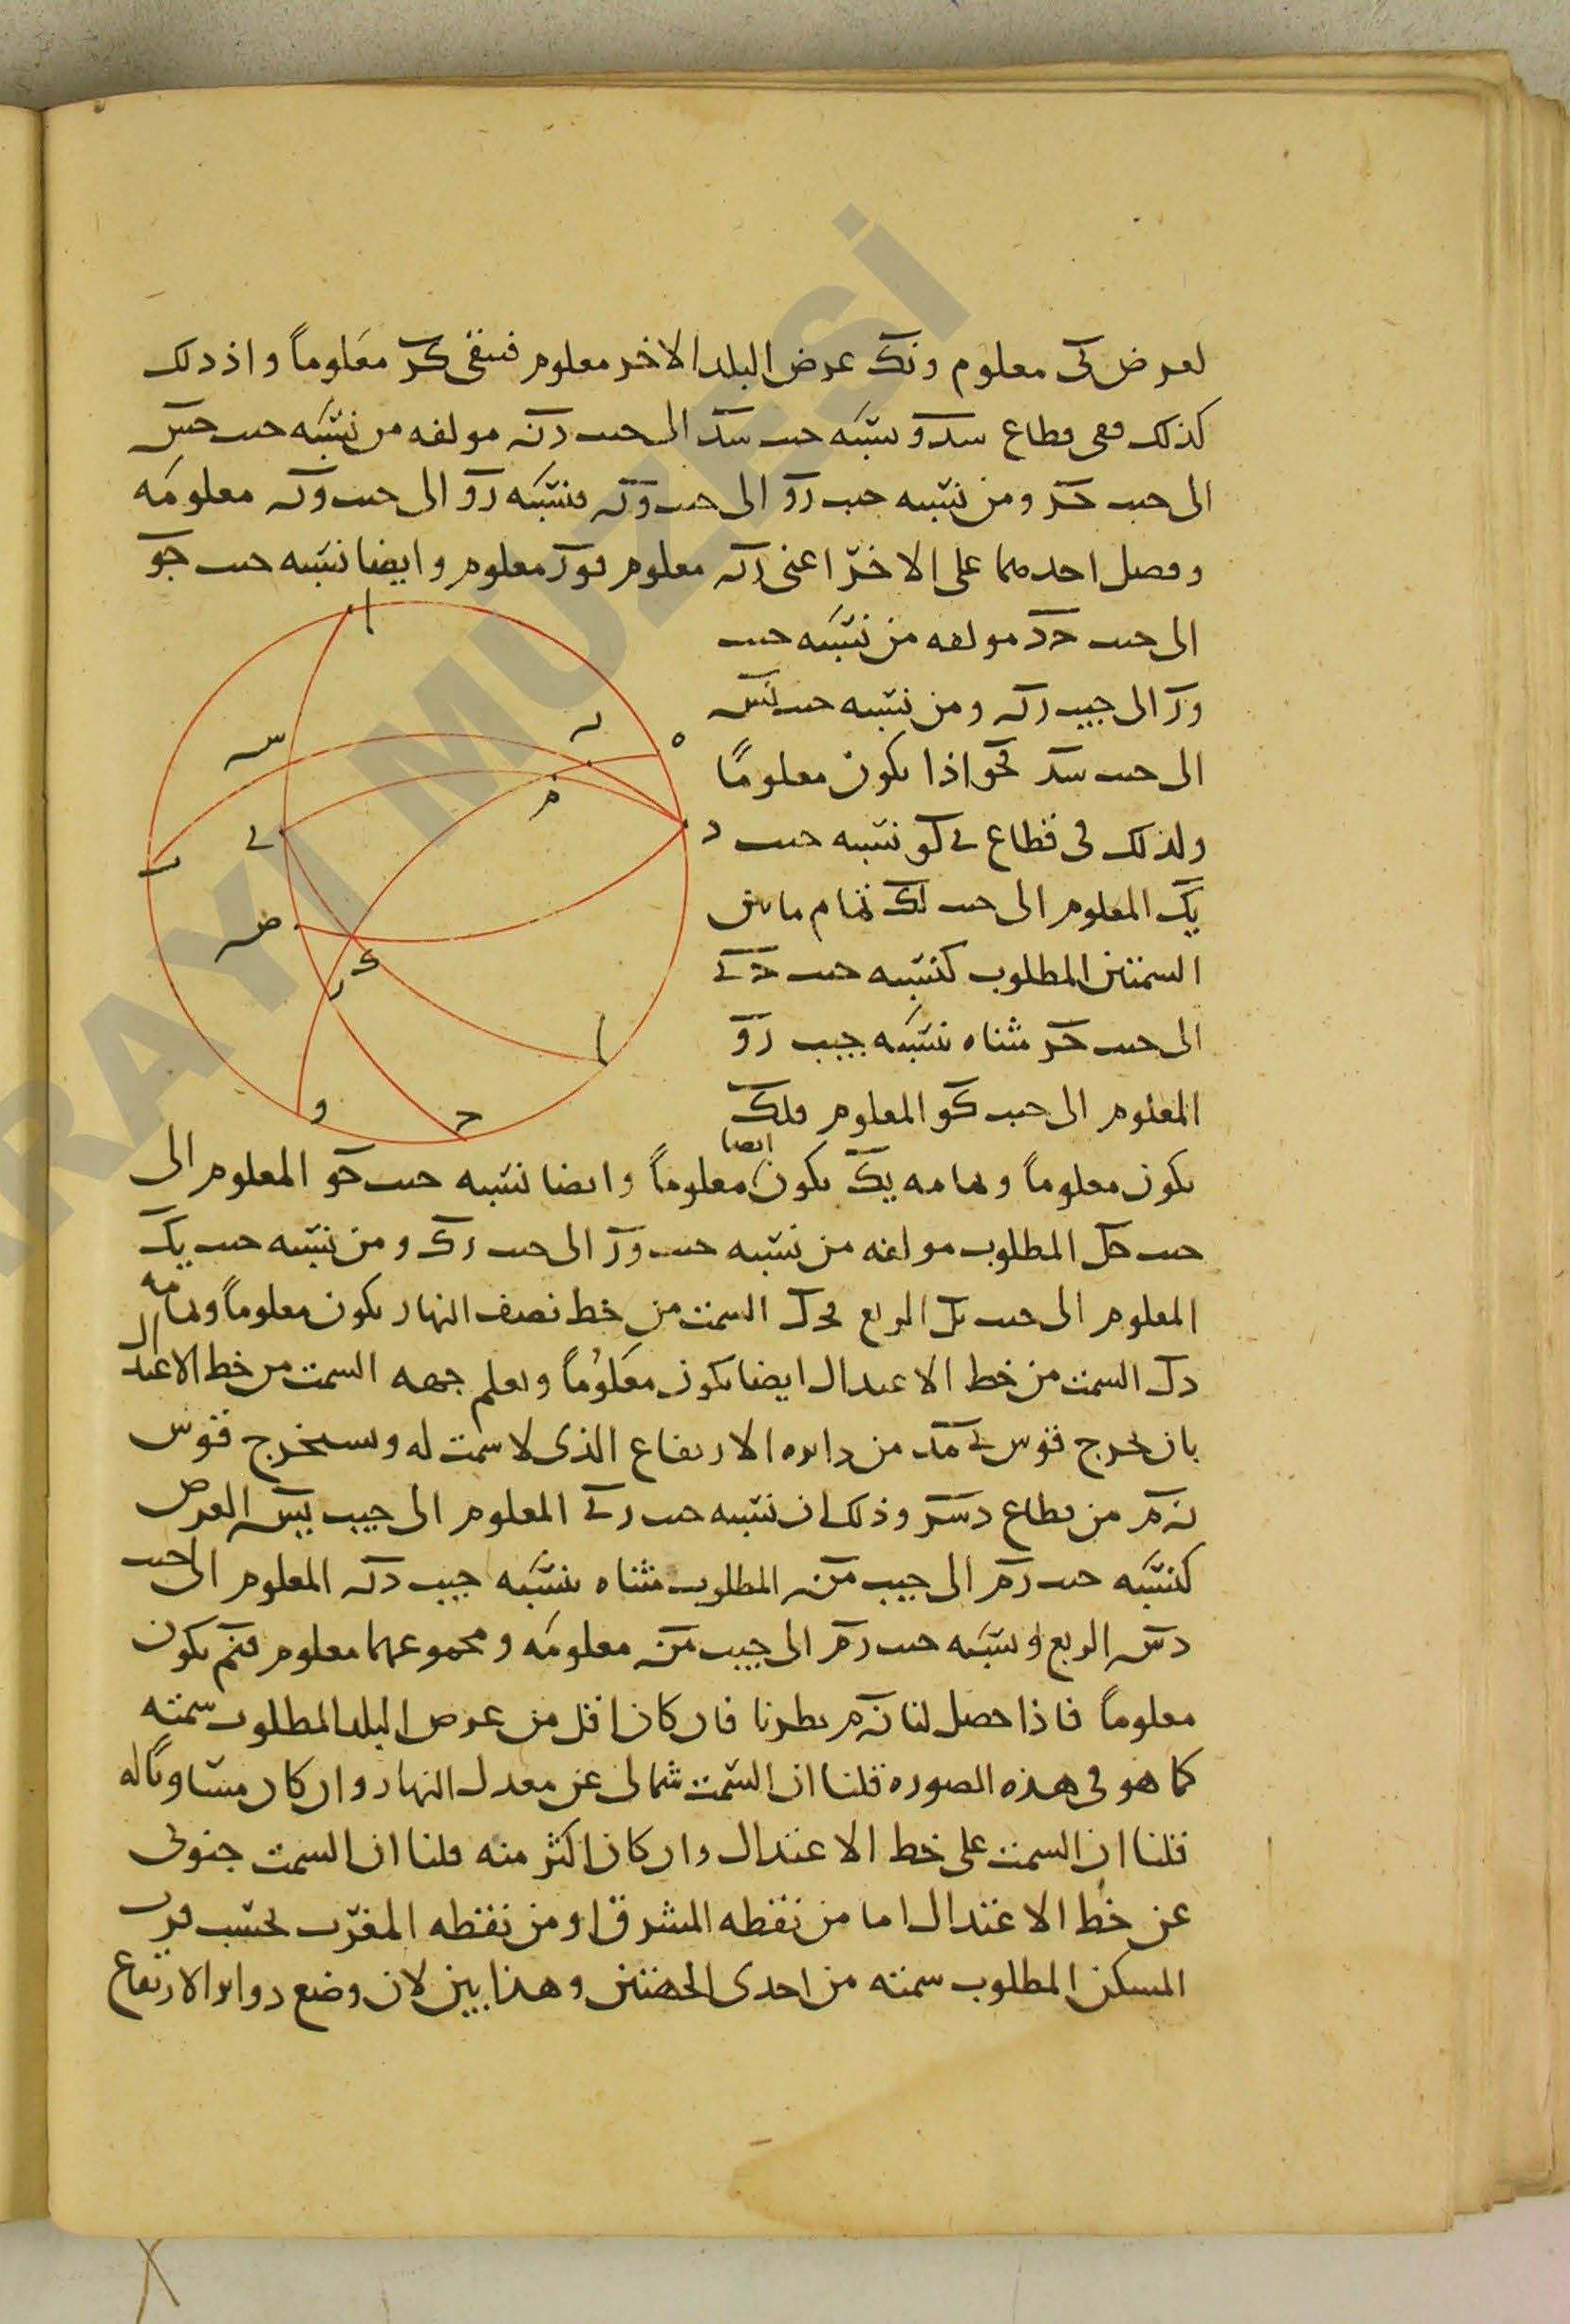 لعرض كى معلوم ونك عرض البلد الاخر معلوم فيبقى كر معلوماً واذ ذلك
كذلك ففى قطاع سدو نسبه جيب سد الى جيب دنه مولفه من نسبه جيب حس
الى جيب حر ومن نسبه جيب رو الى جيب ونه فنسبه رو الى جيب ونه معلومه
وفصل احدهما على الاخر اعنى رنه معلوم فور معلوم وايضا نسبه جيب حو
الى جيب حد مولفه من نسبه جيب
ور الى جيب رنه ومن نسبه جيب نس
الى جيب سد فحو اذا يكون معلوماً
ولذلك فى قطاع ى كو نسبه جيب
يك المعلوم الى جيب لك تمام ما بين
السمتين المطلوب كنسبه جيب حى
الى جيب حر مثناه بنسبه جيب رو
المعلوم الى جيب كو المعلوم فلك
يكون معلوماً وتمامه يك يكون ايضا معلوماً وايضا نسبه جيب حو المعلوم الى
جيب حل المطلوب مولفه من نسبه جيب ور الى جيب رك ومن نسبه جيب يك
المعلوم الى جيب يل الربع فحل السمت من خط نصف النهار يكون معلوماً وتمامه
دل السمت من خط الاعتدال ايضا يكون معلوماً ونعلم جهه السمت من خط الاعتدال
بان نخرج قوس ى مد من دايره الارتفاع الذى لا سمت له ونستخرج قوس
نه م من قطاع دسر وذلك ان نسبه جيب رى المعلوم الى جيب يس العرض
كنسبه جيب رم الى جيب من المطلوب مثناه بنسبه جيب دنه المعلوم الى جيب
دس الربع ونسبه جيب رم الى جيب من معلومه ومجموعهما معلوم فنم يكون
معلوماً فاذا حصل لنا نه م نظرنا فان كان اقل من عرض البلد المطلوب سمته
كما هو فى هذه الصوره قلنا ان السمت شمالى عن معدل النهار وان كان مساوياً له
قلنا ان السمت على خط الاعتدال وان كان اكثر منه قلنا ان السمت جنوبى
عن خط الاعتدال اما من نقطه المشرق او من نقطه المغرب بحسب قرب
المسكن المطلوب سمته من احدى الجهتين وهذا بين لان وضع دواير الارتفاع
ا
نه
ه
س
م
ى
د
ب
ص
ك
ر
ل
و
ح